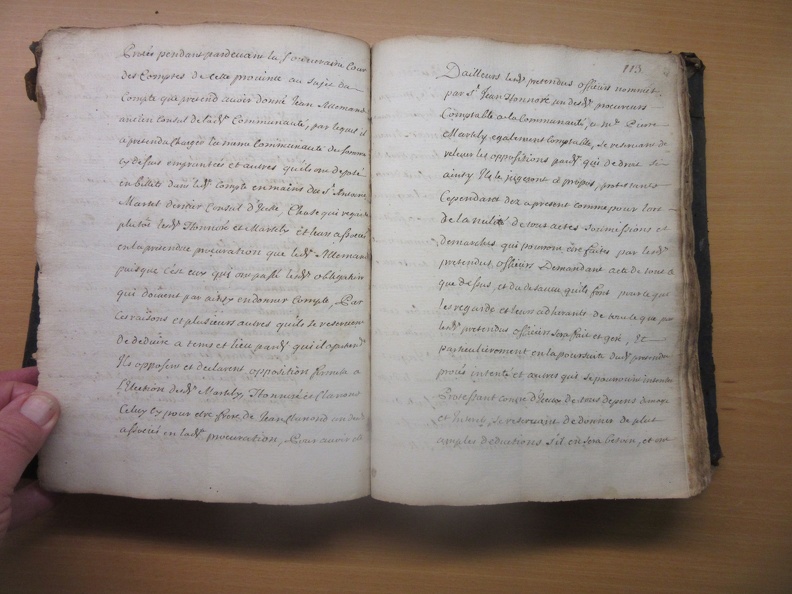 Procés pendant pardevant la Souveraine Cour
des Comptes de cette province au sujet du
Compte que pretend avoir donné Jean Allemand
ancien Consul de lad.e Communauté, par lequel il
a pretendu charger la meme Communauté des sommes
cy dessus empruntées et autres qu'ils ont deposé
en billets dans led. Compte en mains du Sr Antoine
Martel dernier Consul d'icelle, Chose qui regarde
plutot lesd. Honnoré et Martely et leurs associés
en la pretendue procuration que led. Allemand
puisque c'est eux qui ont passé lesd. obligations
qui doivent par ainsy en donner Compte, Par
ces raisons et plusieurs autres qu'ils se reservent
de deduire a tems et lieu pard. qui il apartiendra
Ils opposent et declarent opposition formelle a
l'Election desd. Martely, Honnoré et
Celuy cy pour etre frere de Jean un des
associés en lad. procuration, Pour avoir
113
D'ailleurs lesd. pretendus officiers nommés
par Sr Jean Honnoré un desd. procureurs
Comptable a la Communauté, et Me Pierre
Martely egalement Comptable, se reservant de
relever les oppositions pard. qui de droit
ainsy qu'ils le jugeront a propos, protestants
Cependant dez a present comme pour lors
de la nulité de tous actes Soumissions et
demarches qui pourront etre faites par lesd.
pretendus officiers Demandant acte de tout ce
que dessus, et du desaveu qu'ils font pour ce qui
les regarde et leurs adherants de tout ce que par
lesd. pretendus officiers sera fait et geré, Et
particulierement en la poursuite dud. pretendu
procés intenté et autres qui se pourroint intenter
Protestant contre d'Iceux de tous depens domages
et Interets, se reservant de donner de plus
amples deductions s'il en sera besoin, et ont